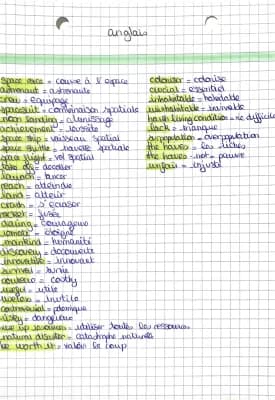 anglais
space race = course à l'espace
astronaut = astronaute
crew = équipage
spacesuit = combinaison spatiale
moon landing = alunissage
achievement = réussite
space ship = vaisseau spatial
space shuttle = navette spatiale
space flight = vol spatial
take off = décoller
launch = lancer
reach = atteindre
land = atterir
crash = s'écraser
rocket = fusée
daring = courageux
remote = éloigné
mankind = humanité
discovery = découverte
innovative = innovant
survival = survie
costly
useful = utile
useless = inutile
controversial = polémique
risky = dangereux
use up resources = utiliser toutes les ressources
natural disaster = catastrophe naturelle
be worth it = valoir le coup
coloniser = colonise
crucial = essentiel
inhabitable = habitable
uninhabitable = invivable
harsh living condition = vie difficile
lack = manque
overpopulation = surpopulation
the haves = les riches
the haves-not = pauvre
unfair = injuste